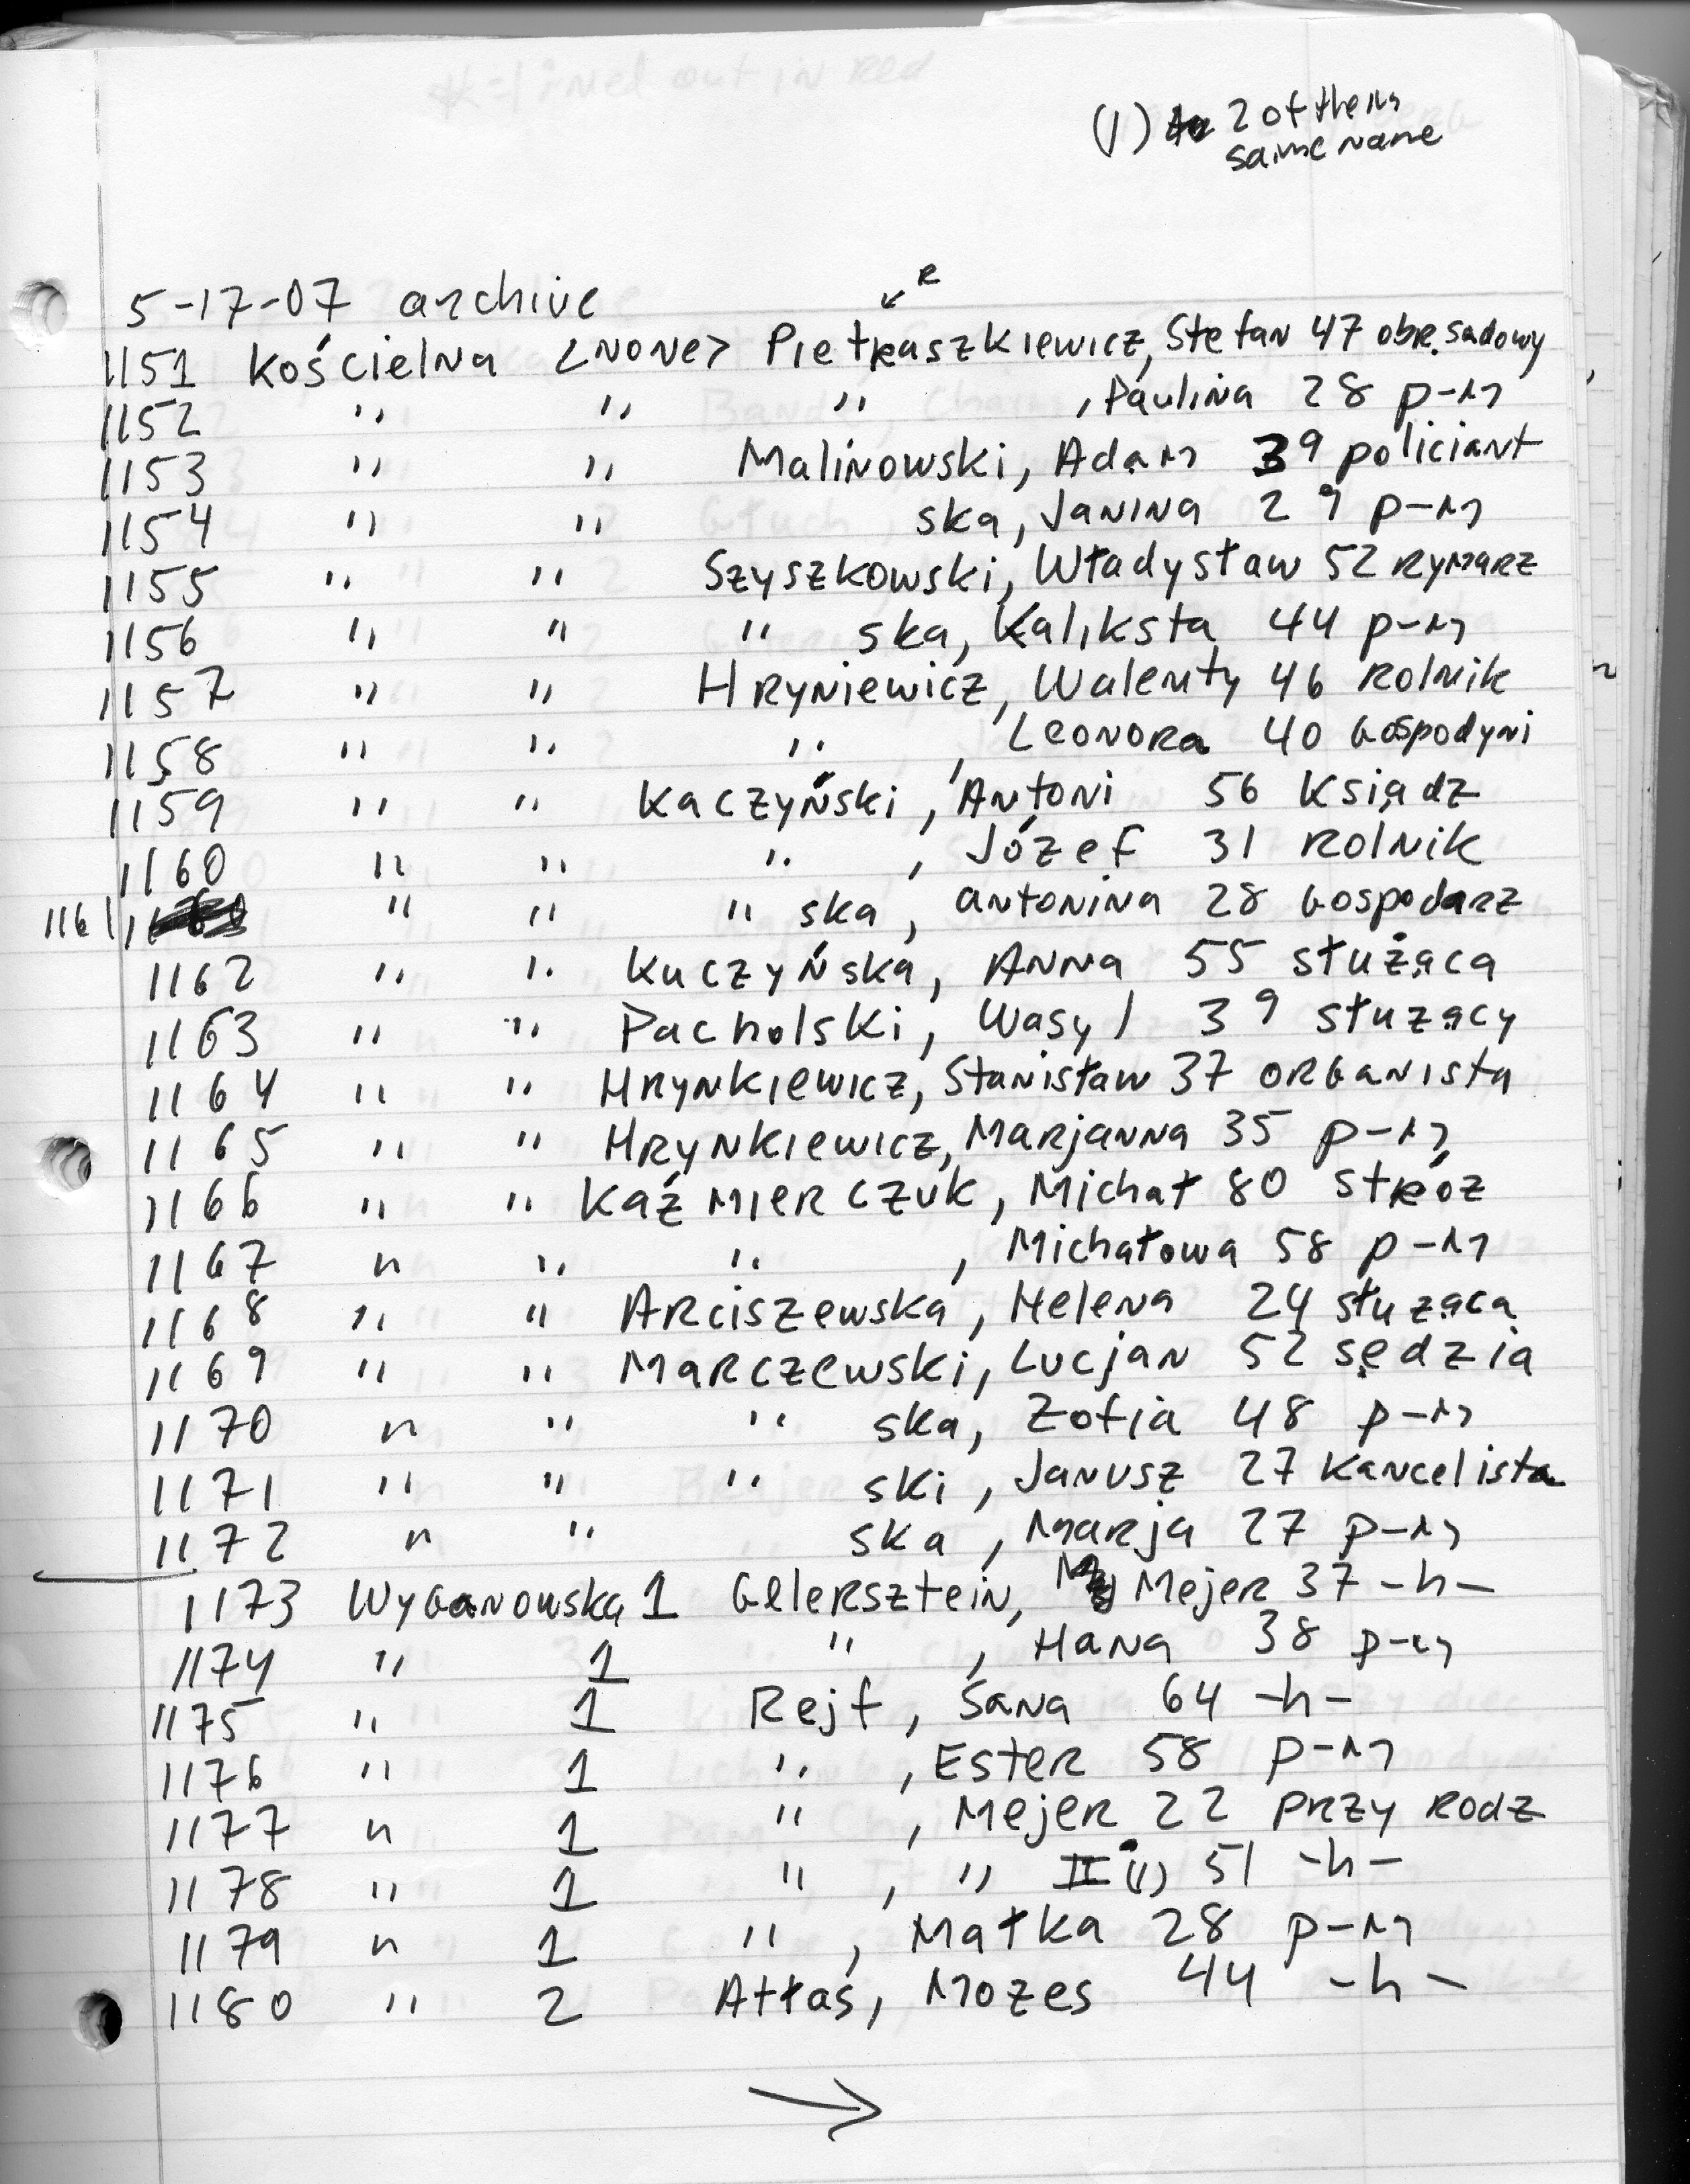 (1) 2 of them
same name
5-17-07 archive
R
1151 Kościelna <NONE> Pietraszkiewicz, Stefan 47 obr. sadowy
1152 " " " , Paulina 28 p-m
1153 " " Malinowski, Adam 39 policiant
1154 " " ska, Janina 29 p-m
1155 " " Szyszkowski, Władysław 52 rymarz
1156 " " " ska, Kaliksta 44 p-m
1157 " " Hryniewicz, Walenty 46 rolnik
1158 " " " , Leonora 40 Gospodyni
1159 " " Kaczyński, Antoni 56 Ksiądz
1160 " " " , Józef 31 rolnik
1161 " " " ska, Antonina 28 Gospodarz
1162 " " Kuczyńska, Anna 55 służąca
1163 " " Pacholski, Wasyl 39 służący
1164 " " Hrynkiewicz, Stanisław 37 organista
1165 " " Hrynkiewicz, Marjanna 35 p-m
1166 " " Kaźmierczuk, Michał 80 stróz
1167 " " " , Michałowa 58 p-m
1168 " " Arciszewska, Helena 24 służąca
1169 " " Marczewski, Lucjan 52 sędzia
1170 " " " ska, Zofia 48 p-m
1171 " " " ski, Janusz 27 kancelista
1172 " " ska, Marja 27 p-m
1173 Wyganowska 1 Glersztein, Mejer 37 -h-
1174 " 1 " , Hana 38 p-m
1175 " 1 Rejf, Sana 64 -h-
1176 " 1 " , Ester 58 p-m
1177 " 1 " , Mejer 22 przy rodz
1178 " 1 " , " II (1) 51 -h-
1179 " 1 " , Małka 28 p-m
1180 " 2 Atłas, Mozes 44 -h-
→